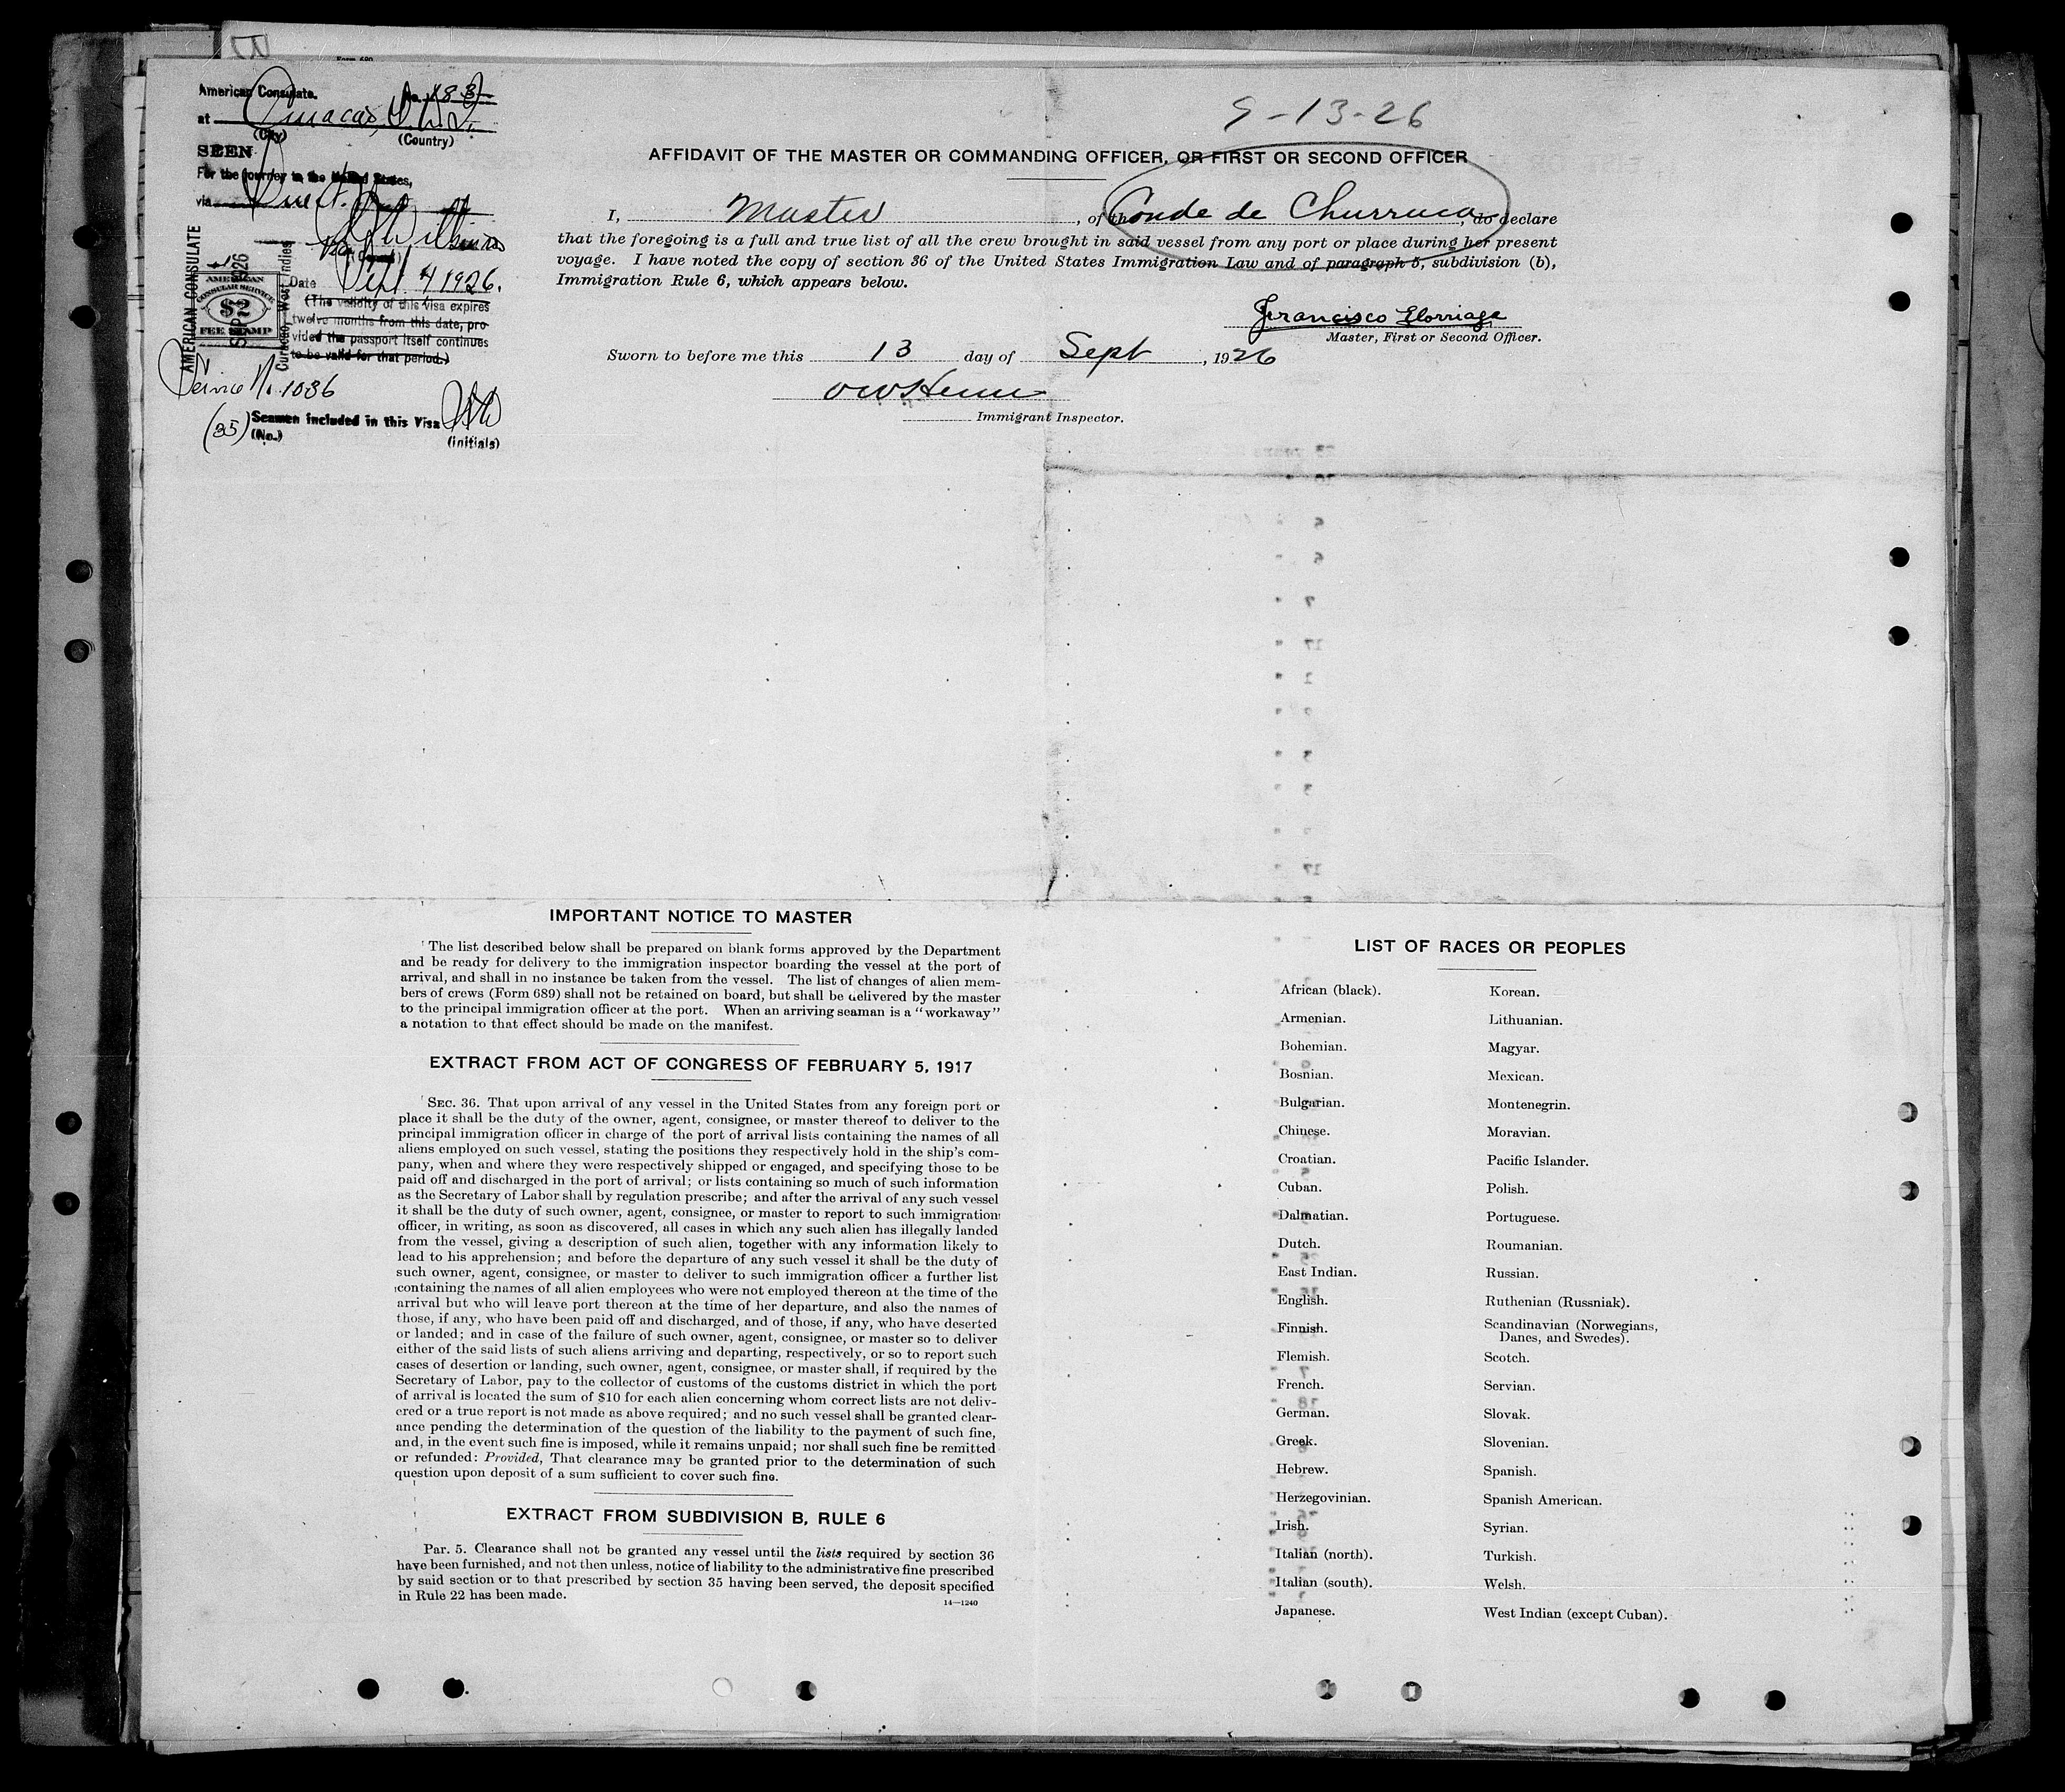 Form 689
American Consulate. No. 183
at Curacao, D.W.I.
(City) (Country)
SEEN
For the journey to the United States,
via Direct.
(Consul)
Date Sept. 4 1926.
(The validity of this visa expires
twelve months from this date, pro-
vided the passport itself continues
to be valid for that period.)
AMERICAN CONSULATE
SEP 4 1926
Curacao, West Indies
AMERICAN
CONSULAR SERVICE
$2
FEE STAMP
Service No. 1036
(35) Seamen included in this Visa
(No.) (initials)
9-13-26
AFFIDAVIT OF THE MASTER OR COMMANDING OFFICER, OR FIRST OR SECOND OFFICER
I, Master, of the Conde de Churruca, do declare
that the foregoing is a full and true list of all the crew brought in said vessel from any port or place during her present
voyage. I have noted the copy of section 36 of the United States Immigration Law and of paragraph 5, subdivision (b),
Immigration Rule 6, which appears below.
Francisco Elorriaga
Master, First or Second Officer.
Sworn to before me this 13 day of Sept, 1926
Immigrant Inspector.
IMPORTANT NOTICE TO MASTER
The list described below shall be prepared on blank forms approved by the Department
and be ready for delivery to the immigration inspector boarding the vessel at the port of
arrival, and shall in no instance be taken from the vessel. The list of changes of alien mem-
bers of crews (Form 689) shall not be retained on board, but shall be delivered by the master
to the principal immigration officer at the port. When an arriving seaman is a "workaway"
a notation to that effect should be made on the manifest.
EXTRACT FROM ACT OF CONGRESS OF FEBRUARY 5, 1917
SEC. 36. That upon arrival of any vessel in the United States from any foreign port or
place it shall be the duty of the owner, agent, consignee, or master thereof to deliver to the
principal immigration officer in charge of the port of arrival lists containing the names of all
aliens employed on such vessel, stating the positions they respectively hold in the ship's com-
pany, when and where they were respectively shipped or engaged, and specifying those to be
paid off and discharged in the port of arrival; or lists containing so much of such information
as the Secretary of Labor shall by regulation prescribe; and after the arrival of any such vessel
it shall be the duty of such owner, agent, consignee, or master to report to such immigration
officer, in writing, as soon as discovered, all cases in which any such alien has illegally landed
from the vessel, giving a description of such alien, together with any information likely to
lead to his apprehension; and before the departure of any such vessel it shall be the duty of
such owner, agent, consignee, or master to deliver to such immigration officer a further list
containing the names of all alien employees who were not employed thereon at the time of the
arrival but who will leave port thereon at the time of her departure, and also the names of
those, if any, who have been paid off and discharged, and of those, if any, who have deserted
or landed; and in case of the failure of such owner, agent, consignee, or master so to deliver
either of the said lists of such aliens arriving and departing, respectively, or so to report such
cases of desertion or landing, such owner, agent, consignee, or master shall, if required by the
Secretary of Labor, pay to the collector of customs of the customs district in which the port
of arrival is located the sum of $10 for each alien concerning whom correct lists are not deliv-
ered or a true report is not made as above required; and no such vessel shall be granted clear-
ance pending the determination of the question of the liability to the payment of such fine,
and, in the event such fine is imposed, while it remains unpaid; nor shall such fine be remitted
or refunded: Provided, That clearance may be granted prior to the determination of such
question upon deposit of a sum sufficient to cover such fine.
EXTRACT FROM SUBDIVISION B, RULE 6
Par. 5. Clearance shall not be granted any vessel until the lists required by section 36
have been furnished, and not then unless, notice of liability to the administrative fine prescribed
by said section or to that prescribed by section 35 having been served, the deposit specified
in Rule 22 has been made.
14—1240
LIST OF RACES OR PEOPLES
African (black).
Armenian.
Bohemian.
Bosnian.
Bulgarian.
Chinese.
Croatian.
Cuban.
Dalmatian.
Dutch.
East Indian.
English.
Finnish.
Flemish.
French.
German.
Greek.
Hebrew.
Herzegovinian.
Irish.
Italian (north).
Italian (south).
Japanese.
Korean.
Lithuanian.
Magyar.
Mexican.
Montenegrin.
Moravian.
Pacific Islander.
Polish.
Portuguese.
Roumanian.
Russian.
Ruthenian (Russniak).
Scandinavian (Norwegians,
Danes, and Swedes).
Scotch.
Servian.
Slovak.
Slovenian.
Spanish.
Spanish American.
Syrian.
Turkish.
Welsh.
West Indian (except Cuban).